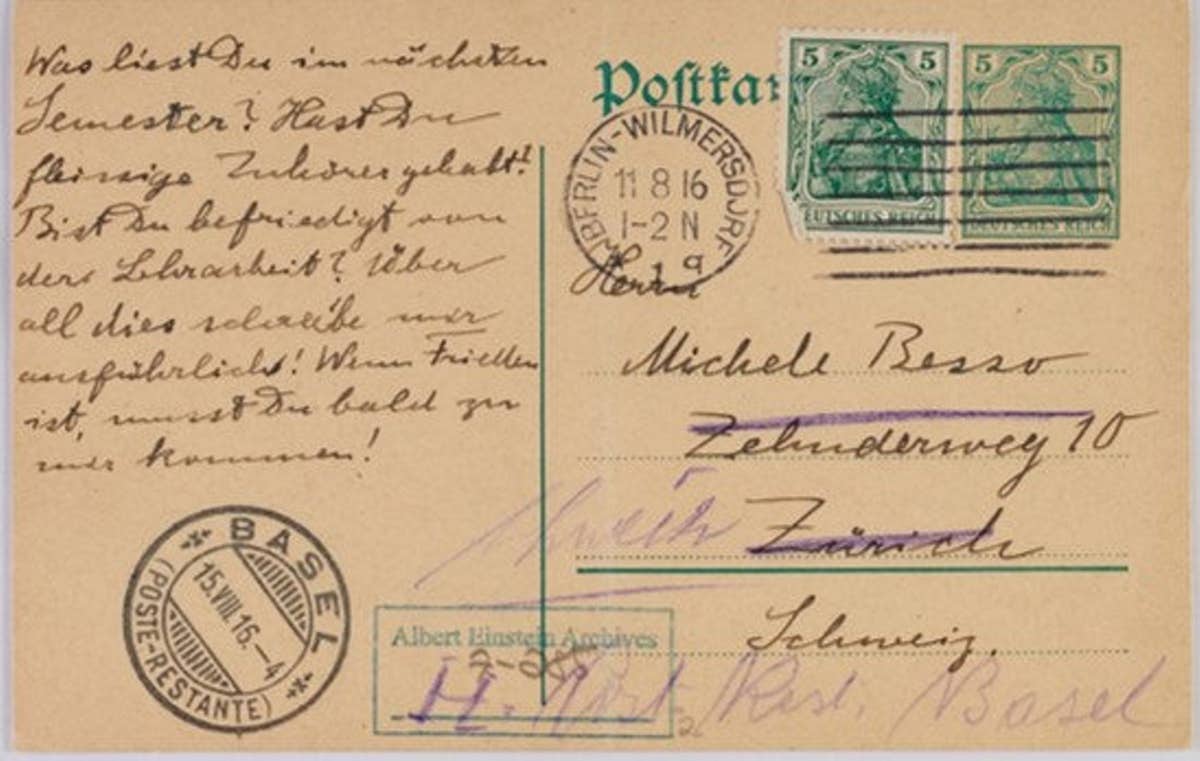 Was liest Du im nächsten
Semester? Hast Du
fleissige Zuhörer gehabt?
Bist Du befriedigt von
der Lehrarbeit? Über
all dies schreibe mir
ausführlich! Wenn Frieden
ist, musst Du bald zu
mir kommen!
Postkar
5 5
DEUTSCHES REICH
5 5
DEUTSCHES REICH
BERLIN-WILMERSDORF
11 8 16
1-2 N
Herrn
Michele Besso
Zehnderweg 10
Zürich
Schweiz.
BASEL
15.VIII.16.-4
(POSTE-RESTANTE)
Albert Einstein Archives
H. Post Rest. Basel